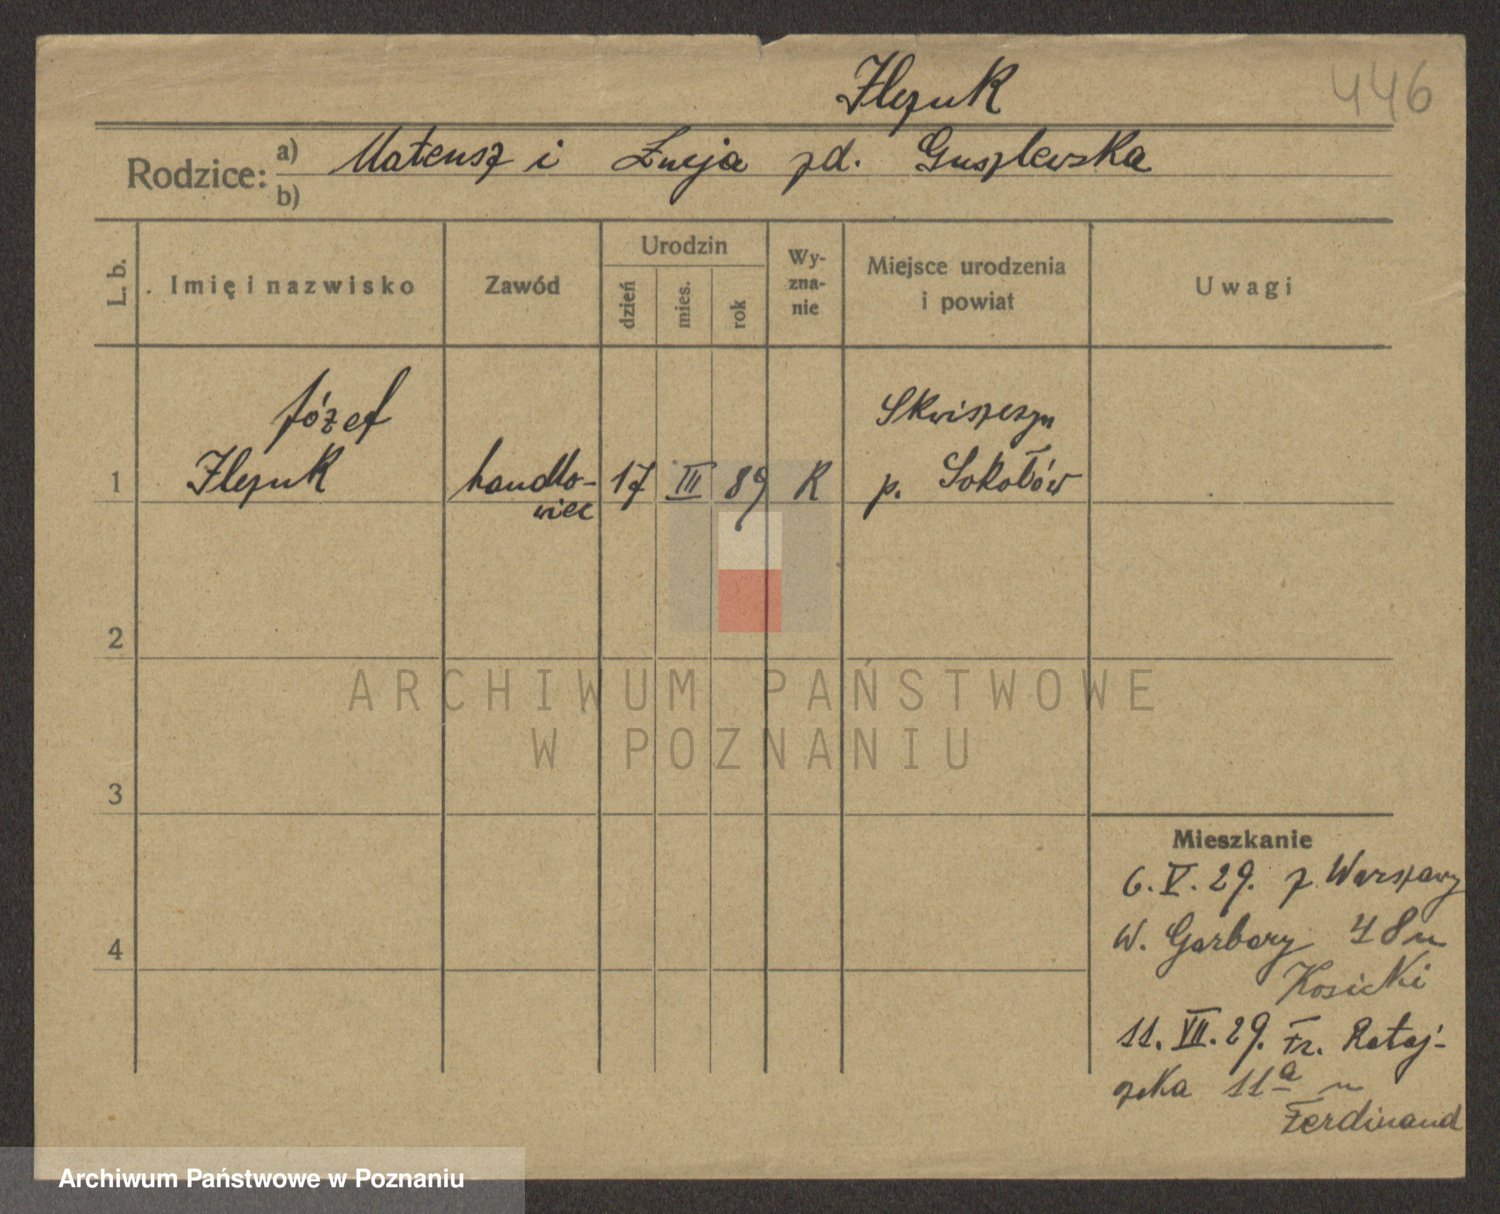 Ilczuk
446
Rodzice: a) Mateusz i Łucja zd. Guszlewska
b)
L. b.
Imię i nazwisko
Zawód
Urodzin
dzień
mies.
rok
Wy-
zna-
nie
Miejsce urodzenia
i powiat
Uwagi
1
Józef
Ilczuk
handlo-
wiec
17
III
89
R
p. Sokołów
2
3
4
Mieszkanie
6. V. 29. z Warszawy
W. Garbary 48 u
Kosicki
11. VII. 29. Fr. Rataj-
czaka 11a u
Ferdinand
ARCHIWUM PAŃSTWOWE
W POZNANIU
Archiwum Państwowe w Poznaniu